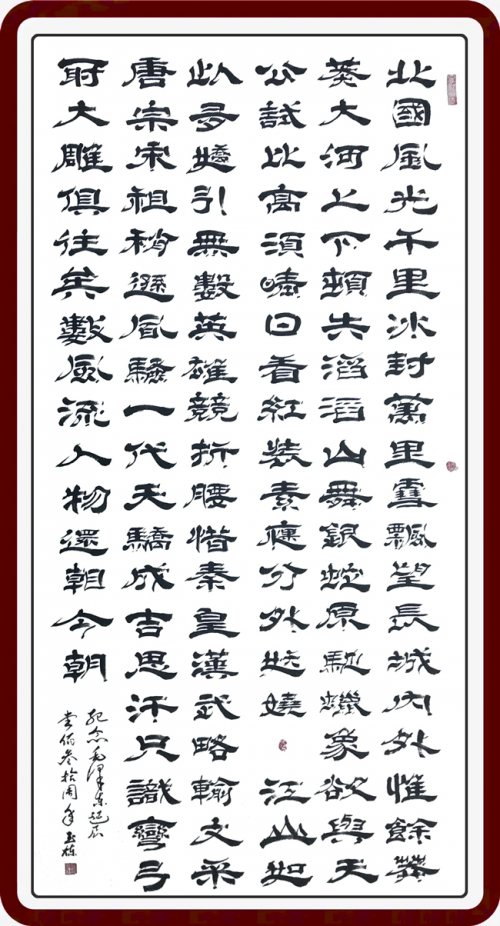 北國風光千里冰封萬里雪飄望長城內外惟餘莽
莽大河上下頓失滔滔山舞銀蛇原馳蠟象欲與天
公試比高須晴日看紅裝素裹分外妖嬈
江山如
此多嬌引無數英雄競折腰惜秦皇漢武略輸文采
唐宗宋祖稍遜風騷一代天驕成吉思汗只識彎弓
射大雕俱往矣數風流人物還看今朝
紀念毛澤東誕辰
壹佰叁拾周年